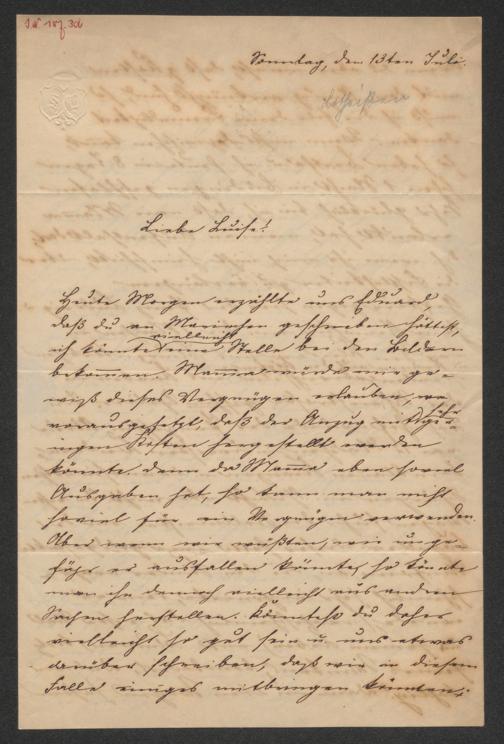 Sonntag, den 13ten Juli.
Liebe Luise!
Heute Morgen erzählte uns Eduard
daß du an Mariechen geschrieben hättest,
ich könnte vielleicht eine Stelle bei den Bildern
bekommen. Mamma würde mir ge-
wiß dieses Vergnügen erlauben,
vorausgesetzt, daß der Anzug mit sehr gerin-
ingen Kosten hergestellt werden
könnte, denn da Mamma eben soviel
Ausgaben hat, so kann man nicht
soviel für ein Vergnügen verwenden.
Aber wenn wir wüßten, wie unge-
fähr er ausfallen könnte, so könnte
man ihn dennoch vielleicht aus andern
Sachen herstellen. Könntest du daher
vielleicht so gut sein u. uns etwas
darüber schreiben, daß wir in diesem
Falle einiges mitbringen könnten;